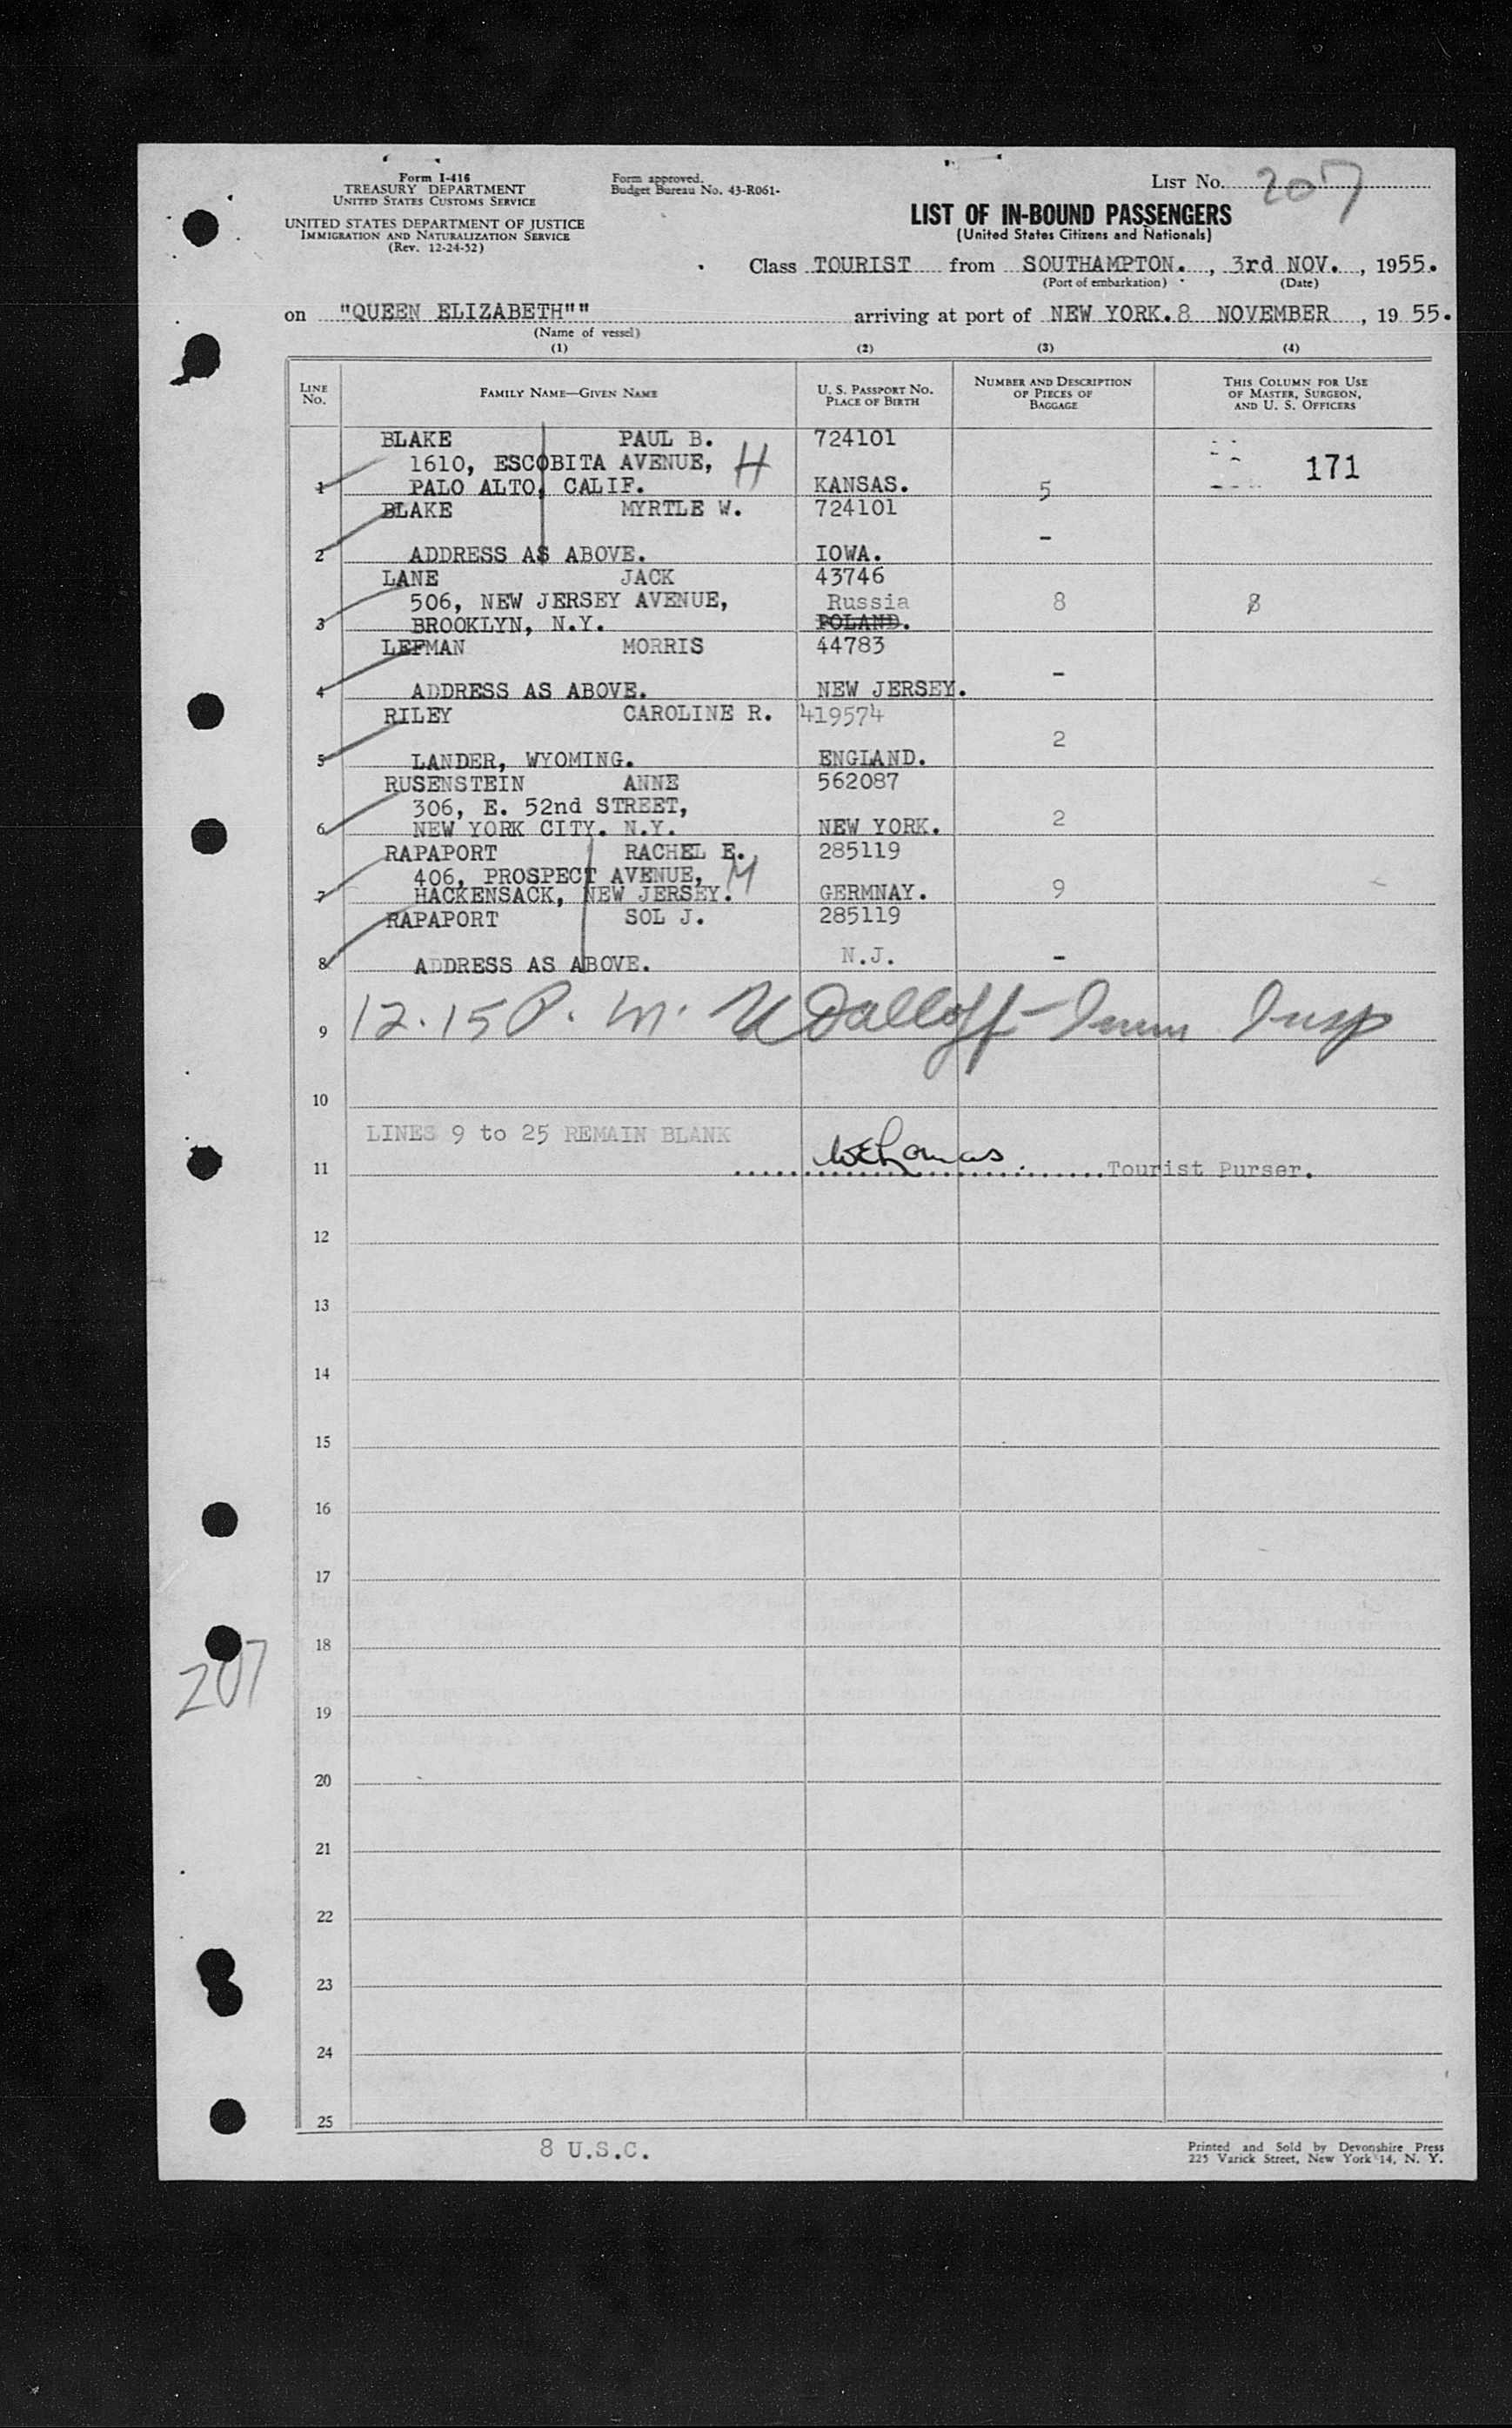 Form I-416
TREASURY DEPARTMENT
UNITED STATES CUSTOMS SERVICE
UNITED STATES DEPARTMENT OF JUSTICE
IMMIGRATION AND NATURALIZATION SERVICE
(Rev. 12-24-52)
Form approved.
Budget Bureau No. 43-R061-
LIST NO. 207
LIST OF IN-BOUND PASSENGERS
(United States Citizens and Nationals)
Class TOURIST from SOUTHAMPTON. , 3rd NOV. , 1955.
(Port of embarkation) (Date)
on "QUEEN ELIZABETH"" arriving at port of NEW YORK. 8 NOVEMBER , 19 55.
(Name of vessel)
(1) (2) (3) (4)
LINE No. FAMILY NAME—GIVEN NAME U. S. PASSPORT NO. PLACE OF BIRTH NUMBER AND DESCRIPTION OF PIECES OF BAGGAGE THIS COLUMN FOR USE OF MASTER, SURGEON, AND U. S. OFFICERS
BLAKE PAUL B. 724101
1610, ESCOBITA AVENUE, H 171
1 PALO ALTO, CALIF. KANSAS. 5
BLAKE MYRTLE W. 724101
-
2 ADDRESS AS ABOVE. IOWA.
LANE JACK 43746
506, NEW JERSEY AVENUE, Russia 8 8
3 BROOKLYN, N.Y. POLAND.
LEFMAN MORRIS 44783
-
4 ADDRESS AS ABOVE. NEW JERSEY.
RILEY CAROLINE R. 419574
2
5 LANDER, WYOMING. ENGLAND.
RUSENSTEIN ANNE 562087
306, E. 52nd STREET, 2
6 NEW YORK CITY. N.Y. NEW YORK.
RAPAPORT RACHEL E. 285119
406, PROSPECT AVENUE, M
7 HACKENSACK, NEW JERSEY. GERMNAY. 9
RAPAPORT SOL J. 285119
N.J.
8 ADDRESS AS ABOVE. -
9 12.15 P. M. Imm Insp
10
LINES 9 to 25 REMAIN BLANK
11 Tourist Purser.
12
13
14
15
16
17
18
207
19
20
21
22
23
24
25
8 U.S.C.
Printed and Sold by Devonshire Press
225 Varick Street, New York 14, N. Y.